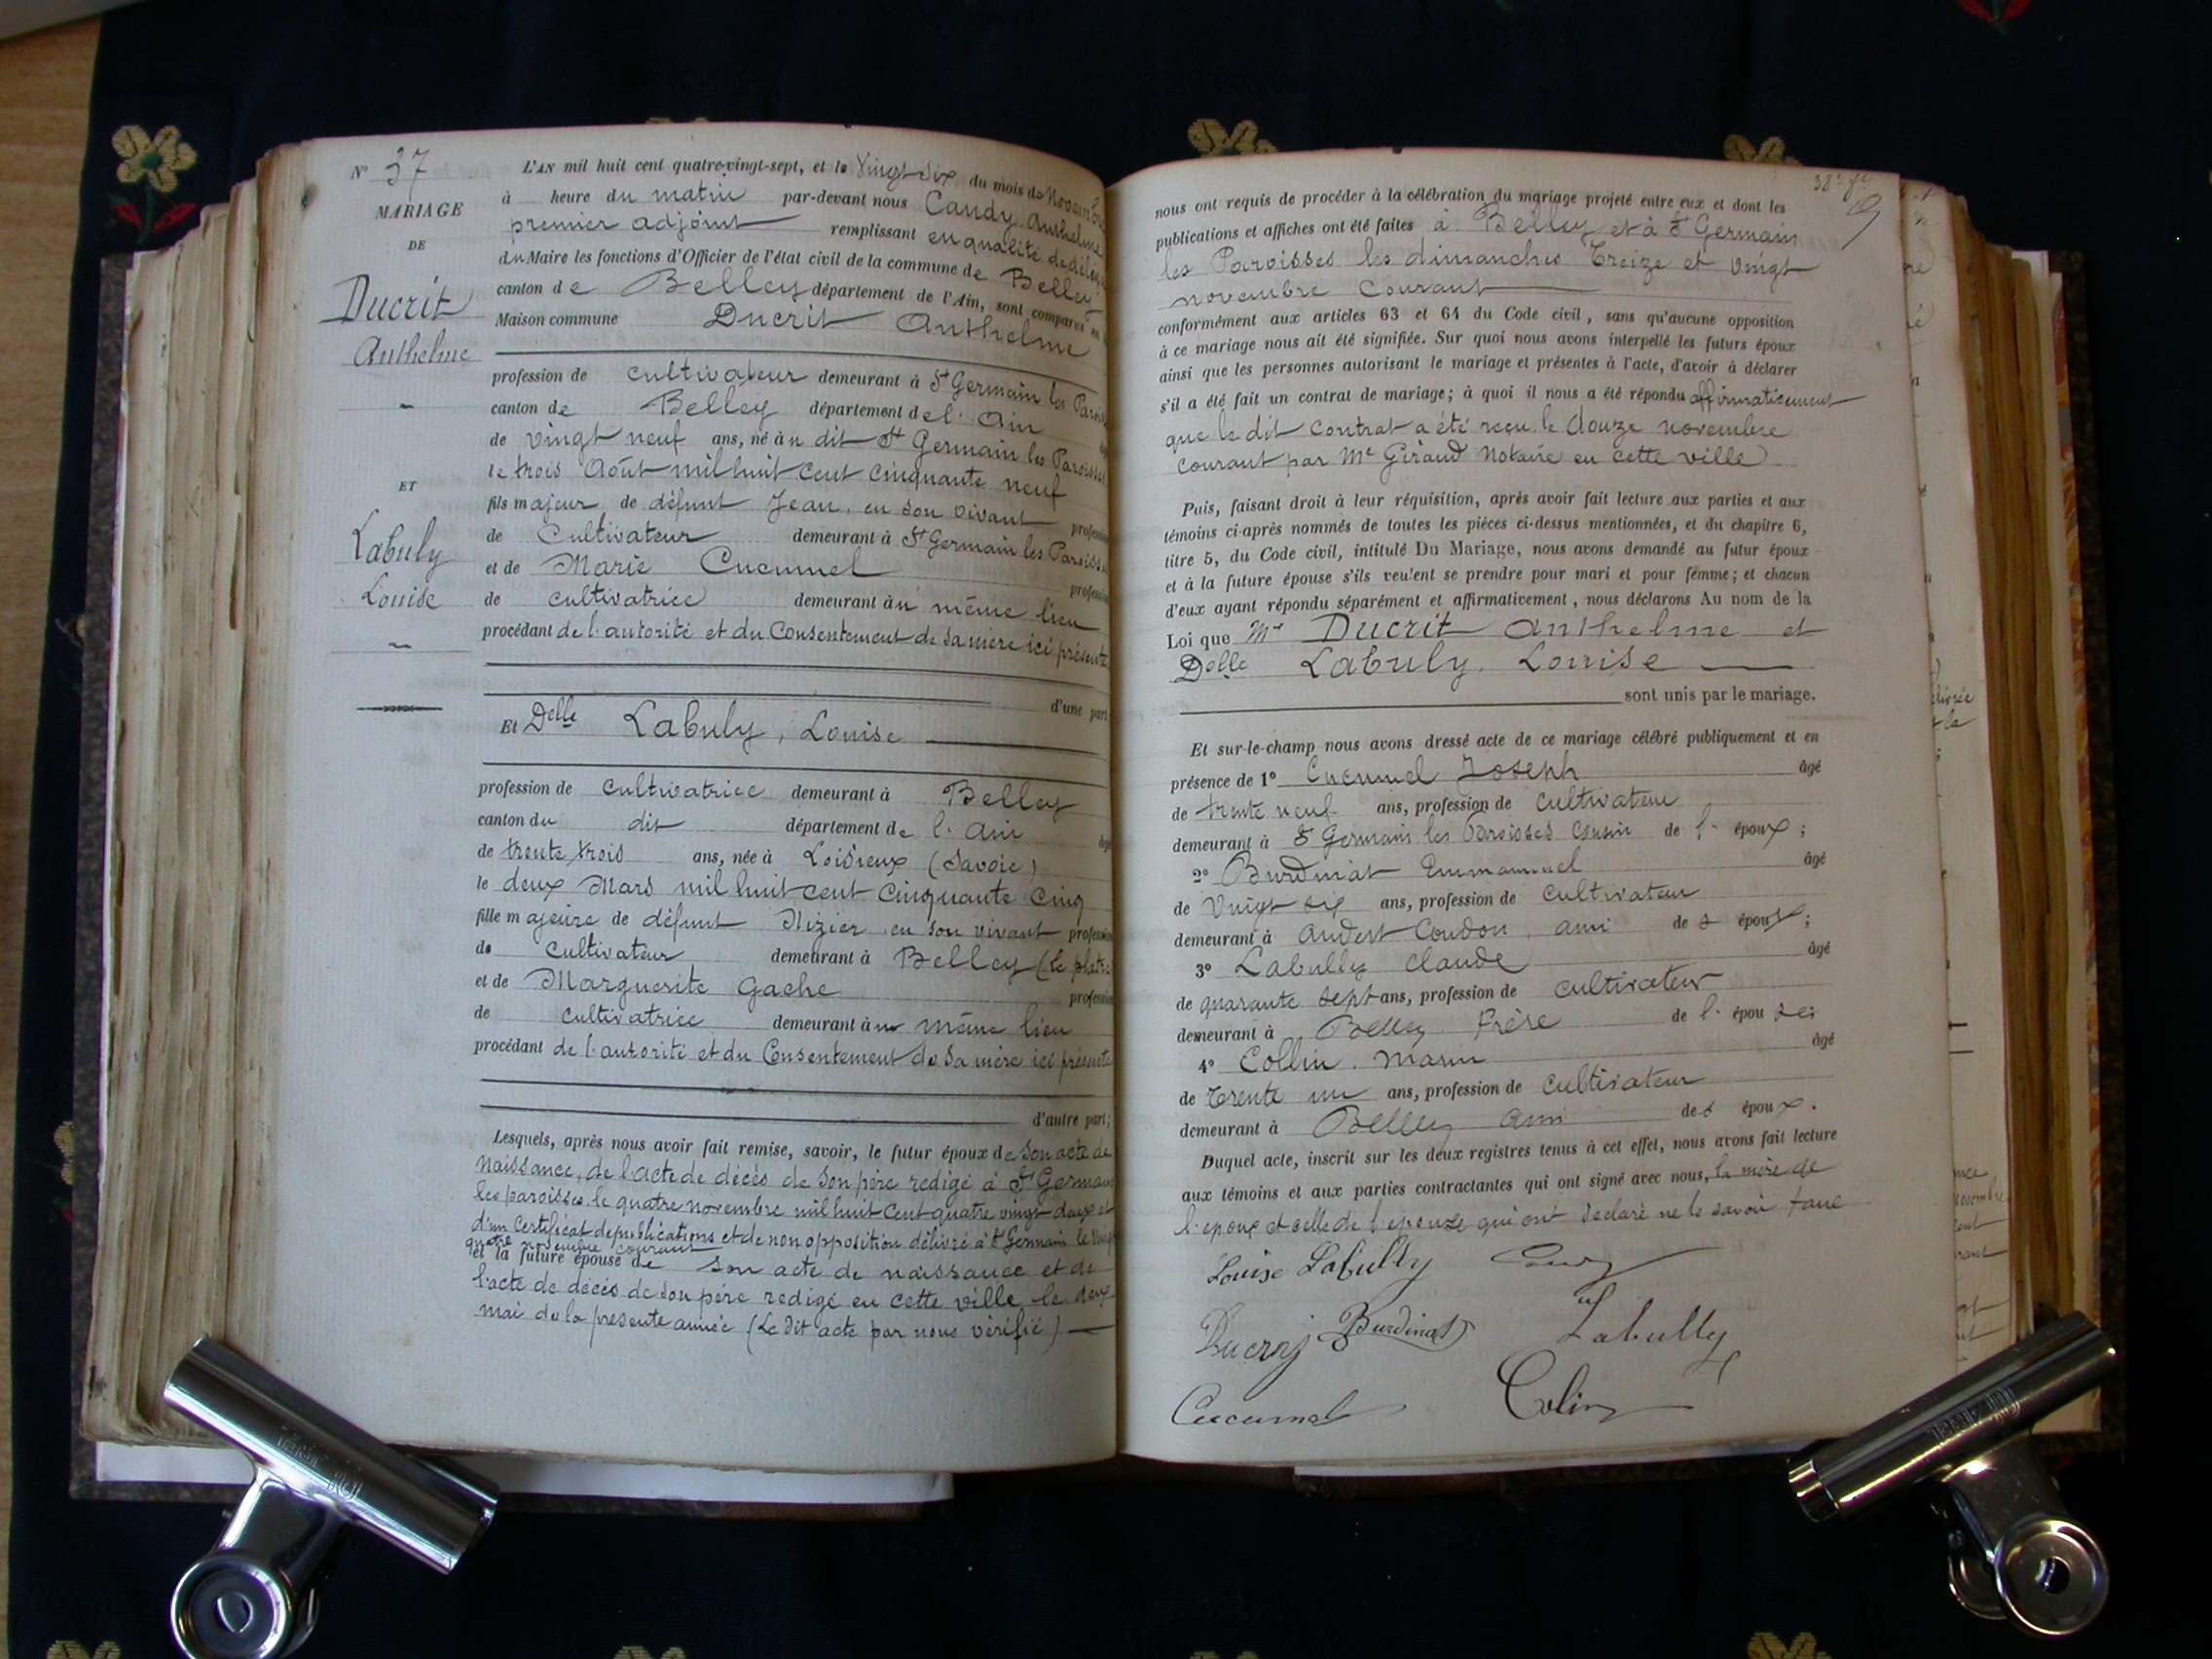 N° 37
MARIAGE
DE
Ducrit
Anthelme
ET
Labuly
Louise
L'AN mil huit cent quatre-vingt-sept, et le Vingt six du mois de Novembre
à heure du matin par-devant nous Candy Anthelme
premier adjoint remplissant en qualité de délégué
du Maire les fonctions d'Officier de l'état civil de la commune de Belley
canton de Belley département de l'Ain, sont comparus en
Maison commune Ducrit Anthelme
profession de cultivateur demeurant à St Germain les Paroisses
canton de Belley département de l'Ain
de vingt neuf ans, né àu dit St Germain les Paroisses
le trois Août mil huit cent cinquante neuf
fils majeur de défunt Jean, en son vivant profession
de Cultivateur demeurant à St Germain les Paroisses
et de Marie Cucumel profession
de cultivatrice demeurant àu même lieu
procédant de l'autorité et du Consentement de sa mère ici présente
d'une part
Et Delle Labuly, Louise
profession de cultivatrice demeurant à Belley
canton du dit département de l'Ain âgé
de trente trois ans, née à Loisieux (Savoie)
le deux Mars mil huit cent cinquante cinq
fille majeure de défunt Nizier en son vivant profession
de cultivateur demeurant à Belley (Le
et de Marguerite Gache profession
de cultivatrice demeurant àu même lieu
procédant de l'autorité et du Consentement de sa mère ici présente
d'autre part;
Lesquels, après nous avoir fait remise, savoir, le futur époux de Son acte de
Naissance, de l'acte de décés de Son père redigé à St Germain
les paroisses le quatre novembre mil huit cent quatre vingt deux et
d'un certificat de publications et de non opposition délivré à St Germain le Vingt
quatre novembre courant
et la future épouse de son acte de naissance et de
l'acte de décés de son père redigé en cette ville le deux
mai de la presente année (Le dit acte par nous vérifié)
38e ft
nous ont requis de procéder à la célébration du mariage projeté entre eux et dont les
publications et affiches ont été faites à Belley et à St Germain
les Paroisses les dimanches Treize et vingt
novembre Courant
conformément aux articles 63 et 64 du Code civil, sans qu'aucune opposition
à ce mariage nous ait été signifiée. Sur quoi nous avons interpellé les futurs époux
ainsi que les personnes autorisant le mariage et présentes à l'acte, d'avoir à déclarer
s'il a été fait un contrat de mariage; à quoi il nous a été répondu affirmativement
que le dit contrat a été reçu le douze novembre
courant par Me Giraud Notaire en cette ville
Puis, faisant droit à leur réquisition, après avoir fait lecture aux parties et aux
témoins ci-après nommés de toutes les pièces ci-dessus mentionnées, et du chapitre 6,
titre 5, du Code civil, intitulé Du Mariage, nous avons demandé au futur époux
et à la future épouse s'ils veulent se prendre pour mari et pour femme; et chacun
d'eux ayant répondu séparément et affirmativement, nous déclarons Au nom de la
Loi que Mr Ducrit Anthelme et
Delle Labuly, Louise
sont unis par le mariage.
Et sur-le-champ nous avons dressé acte de ce mariage célébré publiquement et en
présence de 1° Cucumel Joseph âgé
de trente neuf ans, profession de cultivateur
demeurant à St Germain les Paroisses cousin de l' époux;
2° Burdinat Emmanuel âgé
de Vingt six ans, profession de cultivateur
demeurant à Andert Condon, ami de s époux;
3° Labully Claude âgé
de quarante sept ans, profession de cultivateur
demeurant à Belley frère de l' épouse;
4° Collin Marin âgé
de Trente un ans, profession de cultivateur
demeurant à Belley ami des époux.
Duquel acte, inscrit sur les deux registres tenus à cet effet, nous avons fait lecture
aux témoins et aux parties contractantes qui ont signé avec nous, la mère de
l'epoux et celle de l'epouse qui ont declaré ne le savoir faire
Louise Labully Candy
Burdinat Labully
Cucumel Colin